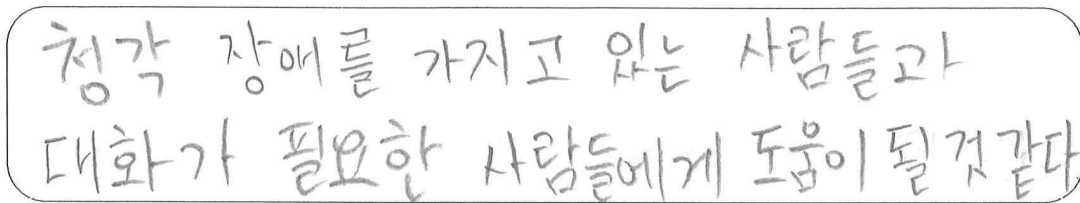 청각 장애를 가지고 있는 사람들과
대화가 필요한 사람들에게 도움이 될것 같다